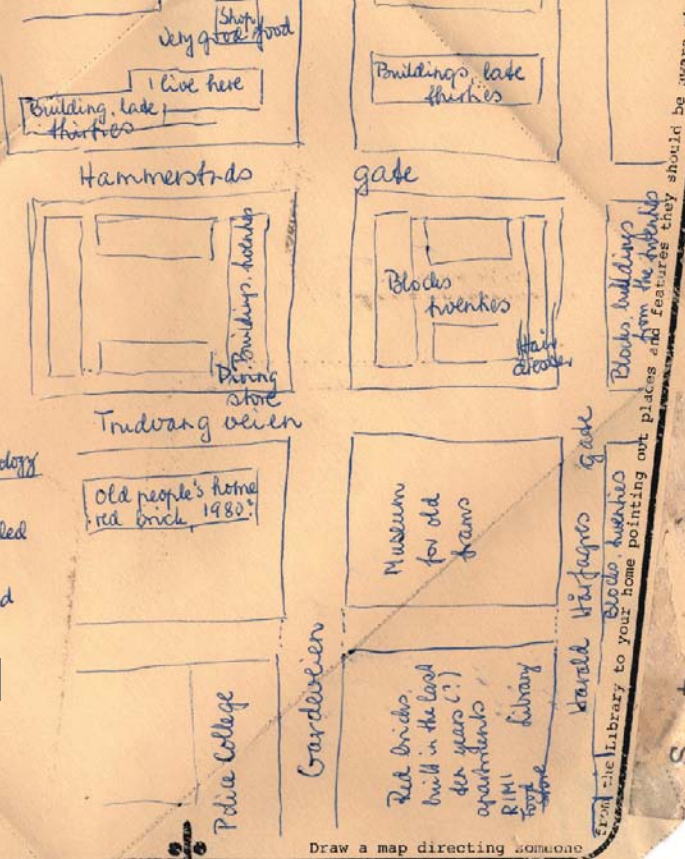 Shop
very good food
I live here
Building, late
thirties
Buildings, late
thirties
Hammerstads gate
Buildings, twenties
Diving
store
Blocks
twenties
Hair
dresser
Blocks, buildings
from the twenties
Trudvang veien
old people's home
red brick, 1980?
Museum
for old
trams
Harald Hårfagres gate
Blocks, twenties
Police College
Gardeveien
Red bricks,
built in the last
ten years (?)
apartments
RIMI
food
store
Library
Draw a map directing someone
from the Library to your home pointing out places and features they should be aware